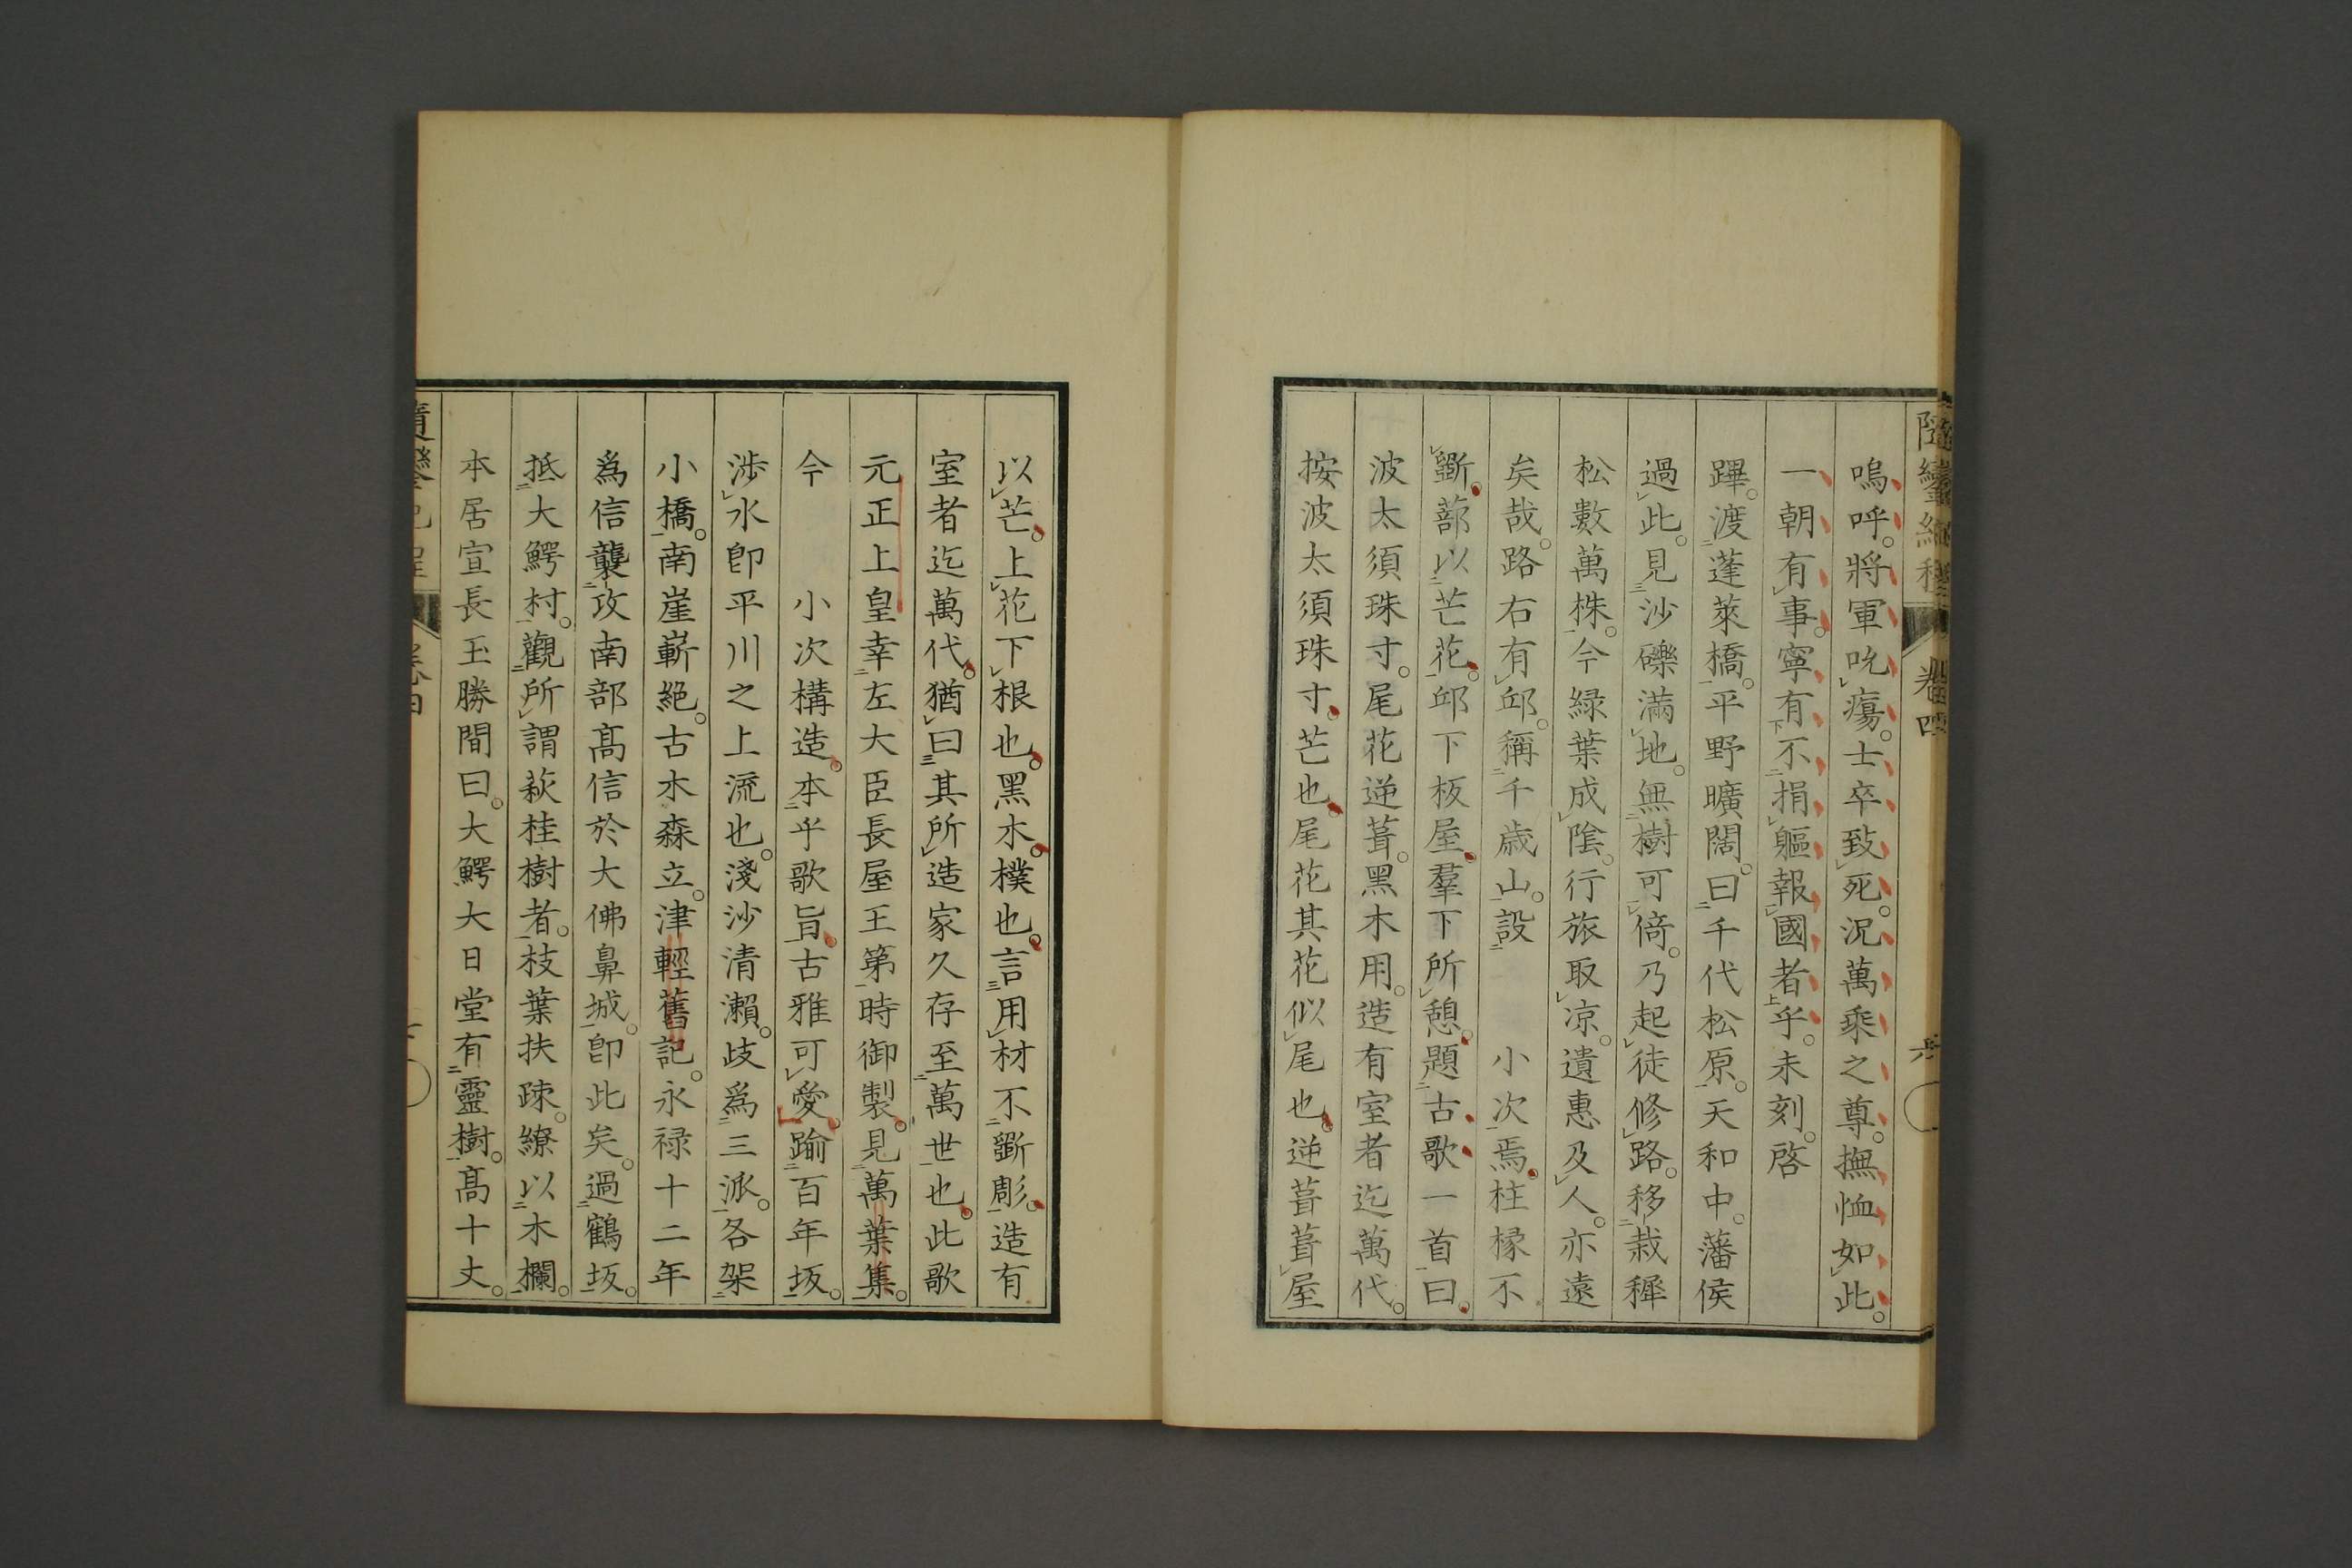 隨鑾紀程 卷四
嗚呼。將軍吮瘍。士卒致死。況萬乘之尊。撫恤如此。
一朝有事。寧有不捐軀報國者乎。未刻。啓
蹕。渡蓬萊橋。平野曠闊。曰千代松原。天和中。藩侯
過此。見沙礫滿地。無樹可倚。乃起徒修路。移栽穉
松數萬株。今緑葉成陰。行旅取凉。遺惠及人。亦遠
矣哉。路右有邱。稱千歳山。設　小次焉。柱椽不
斲。蔀以芒花。邱下板屋。羣下所憩。題古歌一首曰。
波太須珠寸。尾花逆葺。黑木用。造有室者迄萬代。
按波太須珠寸。芒也。尾花其花似尾也。逆葺葺屋
以芒。上花下根也。黑木。樸也。言用材不斲彫。造有
室者迄萬代。猶曰其所造家久存至萬世也。此歌
元正上皇幸左大臣長屋王第時御製。見萬葉集。
今　　小次構造。本乎歌旨。古雅可愛。踰百年坂。
渉水卽平川之上流也。淺沙清瀨。歧爲三派。各架
小橋。南崖嶄絕。古木森立。津輕舊記。永禄十二年
爲信襲攻南部髙信於大佛鼻城。卽此矣。過鶴坂。
抵大鰐村。觀所謂萩桂樹者。枝葉扶疎。繚以木欄。
本居宣長玉勝間曰。大鰐大日堂有靈樹。髙十丈。